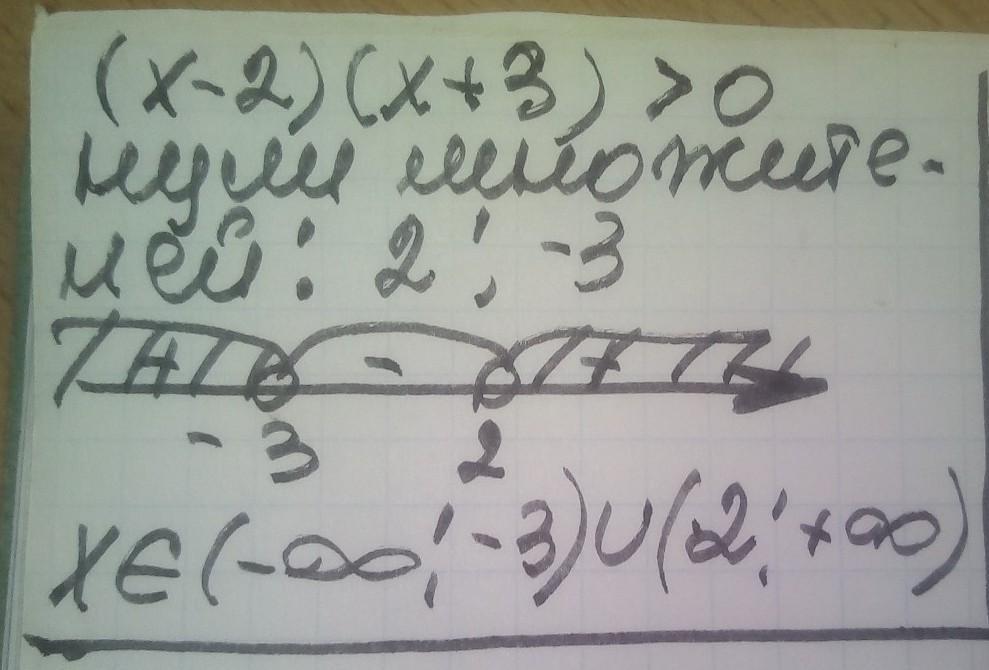 (x-2)(x+3)>0
нули множите-
лей: 2; -3
+ - +
-3 2
x∈(-∞;-3)∪(2;+∞)